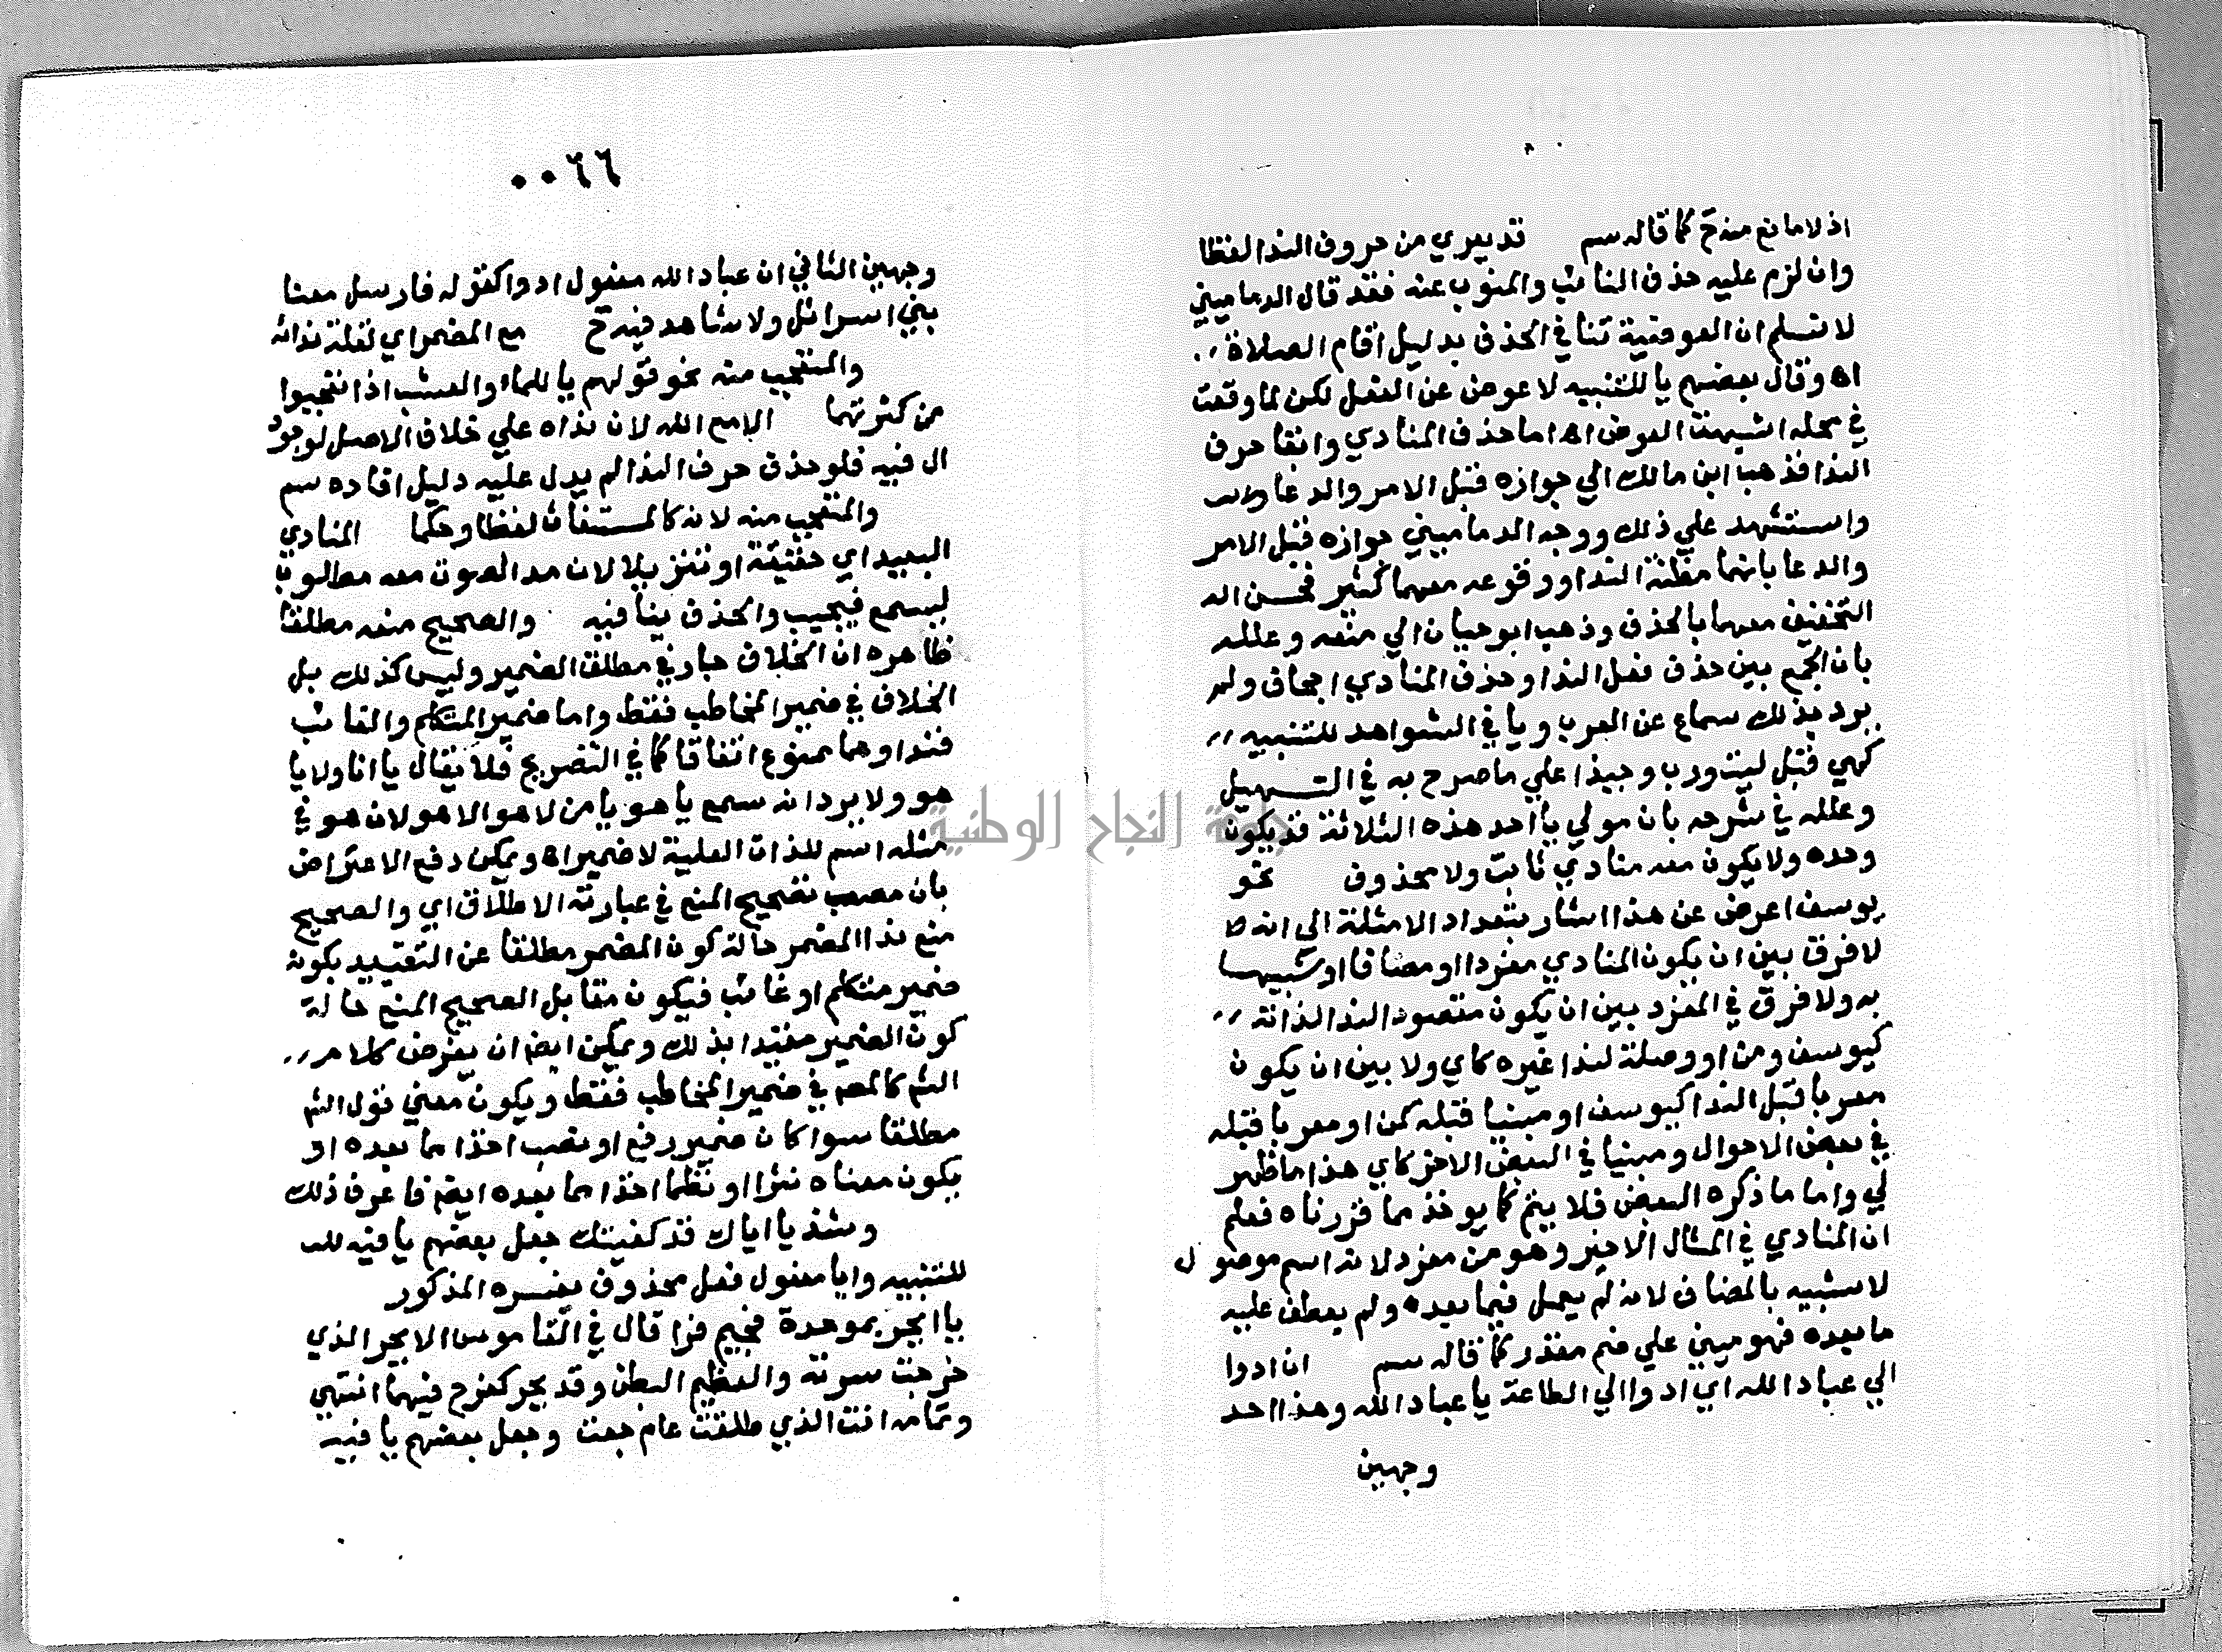 اذ لا مانع منه ح كما قاله سم قد يعري من حروف الندا لفظا
وان لزم عليه حذف النائب والمنوب عنه فقد قال الدماميني
لا نسلم ان العوضية تنافي الحذف بدليل اقام الصلاة ،،
اه وقال بعضهم يا للتنبيه لا عوض عن الفعل لكن لما وقعت
في محله اشبهت العوض اه اما حذف المنادي وابقا حرف
الندا فذهب ابن مالك الي جوازه قبل الامر والدعا
واستشهد علي ذلك ووجه الدماميني جوازه قبل الامر
والدعا بانهما مظنة الندا ووقوعه معهما كثير فحسن الـ
التخفيف معهما بالحذف وذهب ابو حيان الي منعه وعلله
بان الجمع بين حذف فعل الندا وحذف المنادي اجحاف ولم
يرد بذلك سماع عن العرب ويا في الشواهد للتنبيه ،،
كهي قبل ليت ورب وحبذا علي ما صرح به في التسهيل
وعلله في شرحه بان مولي يا احد هذه الثلاثة قد يكون
وحده ولا يكون معه منادي ثابت ولا محذوف نحو
يوسف اعرض عن هذا اشار بتعداد الامثلة الي انه لا
لا فرق بين ان يكون المنادي مفردا او مضافا او شبيها
به ولا فرق في المفرد بين ان يكون مقصود الندا لذاته ،،
كيوسف ومن او وصلة لندا غيره كاي ولا بين ان يكون
معربا قبل الندا كيوسف او مبنيا قبله كمن او معربا قبله
في بعض الاحوال ومبنيا في البعض الاخر كاي هذا ما ظهر
لي واما ما ذكره البعض فلا يتم كما يوخذ مما قررناه فعلم
ان المنادي في المثال الاخير وهو من مفرد لانه اسم موصول
لا شبيه بالمضاف لانه لم يعمل فيما بعده ولم يعطف عليه
ما بعده فهو مبني علي ضم مقدر كما قاله سم ان ادوا
الي عباد الله اي ادوا الي الطاعة يا عباد الله وهذا احد
وجهين
٠٠٦٦
وجهين الثاني ان عباد الله مفعول ادوا كقوله فارسل معنا
بني اسرائل ولا شاهد فيه ح مع المضمر اي لقلة ندائه
والمتعجب منه نحو قولهم يا للماء والعشب اذا تعجبوا
من كثرتهما الا مع الله لان نداه علي خلاف الاصل لوجود
ال فيه فلو حذف حرف الندا لم يدل عليه دليل افاده سم
والمتعجب منه لانه كالمستغاث لفظا وحكما المنادي
البعيد اي حقيقة او تنزيلا لان مد الصوت معه مطلوب
ليسمع فيجيب والحذف ينافيه والصحيح منعه مطلقا
ظاهره ان الخلاف جار في مطلق الضمير وليس كذلك بل
الخلاف في ضمير المخاطب فقط واما ضمير المتكلم والغائب
فنداوهما ممنوع اتفاقا كما في التصريح فلا يقال يا انا ولا يا
هو ولا يرد انه سمع يا هو يا من لا هو الا هو لان هو في
مثله اسم للذات العلية لا ضمير اه ويمكن دفع الاعتراض
بان مصب تصحيح المنع في عبارته الاطلاق اي والصحيح
منع ندا المضمر حالة كون المضمر مطلقا عن التقييد بكونه
ضمير متكلم او غائب فيكون مقابل الصحيح المنع حالة
كون الضمير مقيدا بذلك ويمكن ايضا ان يفرض كلام ،،
الشم كالمصم في ضمير المخاطب فقط ويكون معني قول الشم
مطلقا سوا كان ضمير رفع او نصب اخذا مما بعده او
يكون معناه نثرا او نظما اخذا مما بعده ايضم فاعرف ذلك
وشذ يا اياك قد كفيتك جعل بعضهم يا فيه للـ
للتنبيه وايا مفعول فعل محذوف يفسره المذكور
يا ابجر بموحدة فجيم فرا قال في القاموس الابجر الذي
خرجت سرته والعظيم البطن وقد بجر كفرح فيهما انتهي
وتمامه انت الذي طلقت عام جعت وجعل بعضهم يا فيه
جامعة النجاح الوطنية